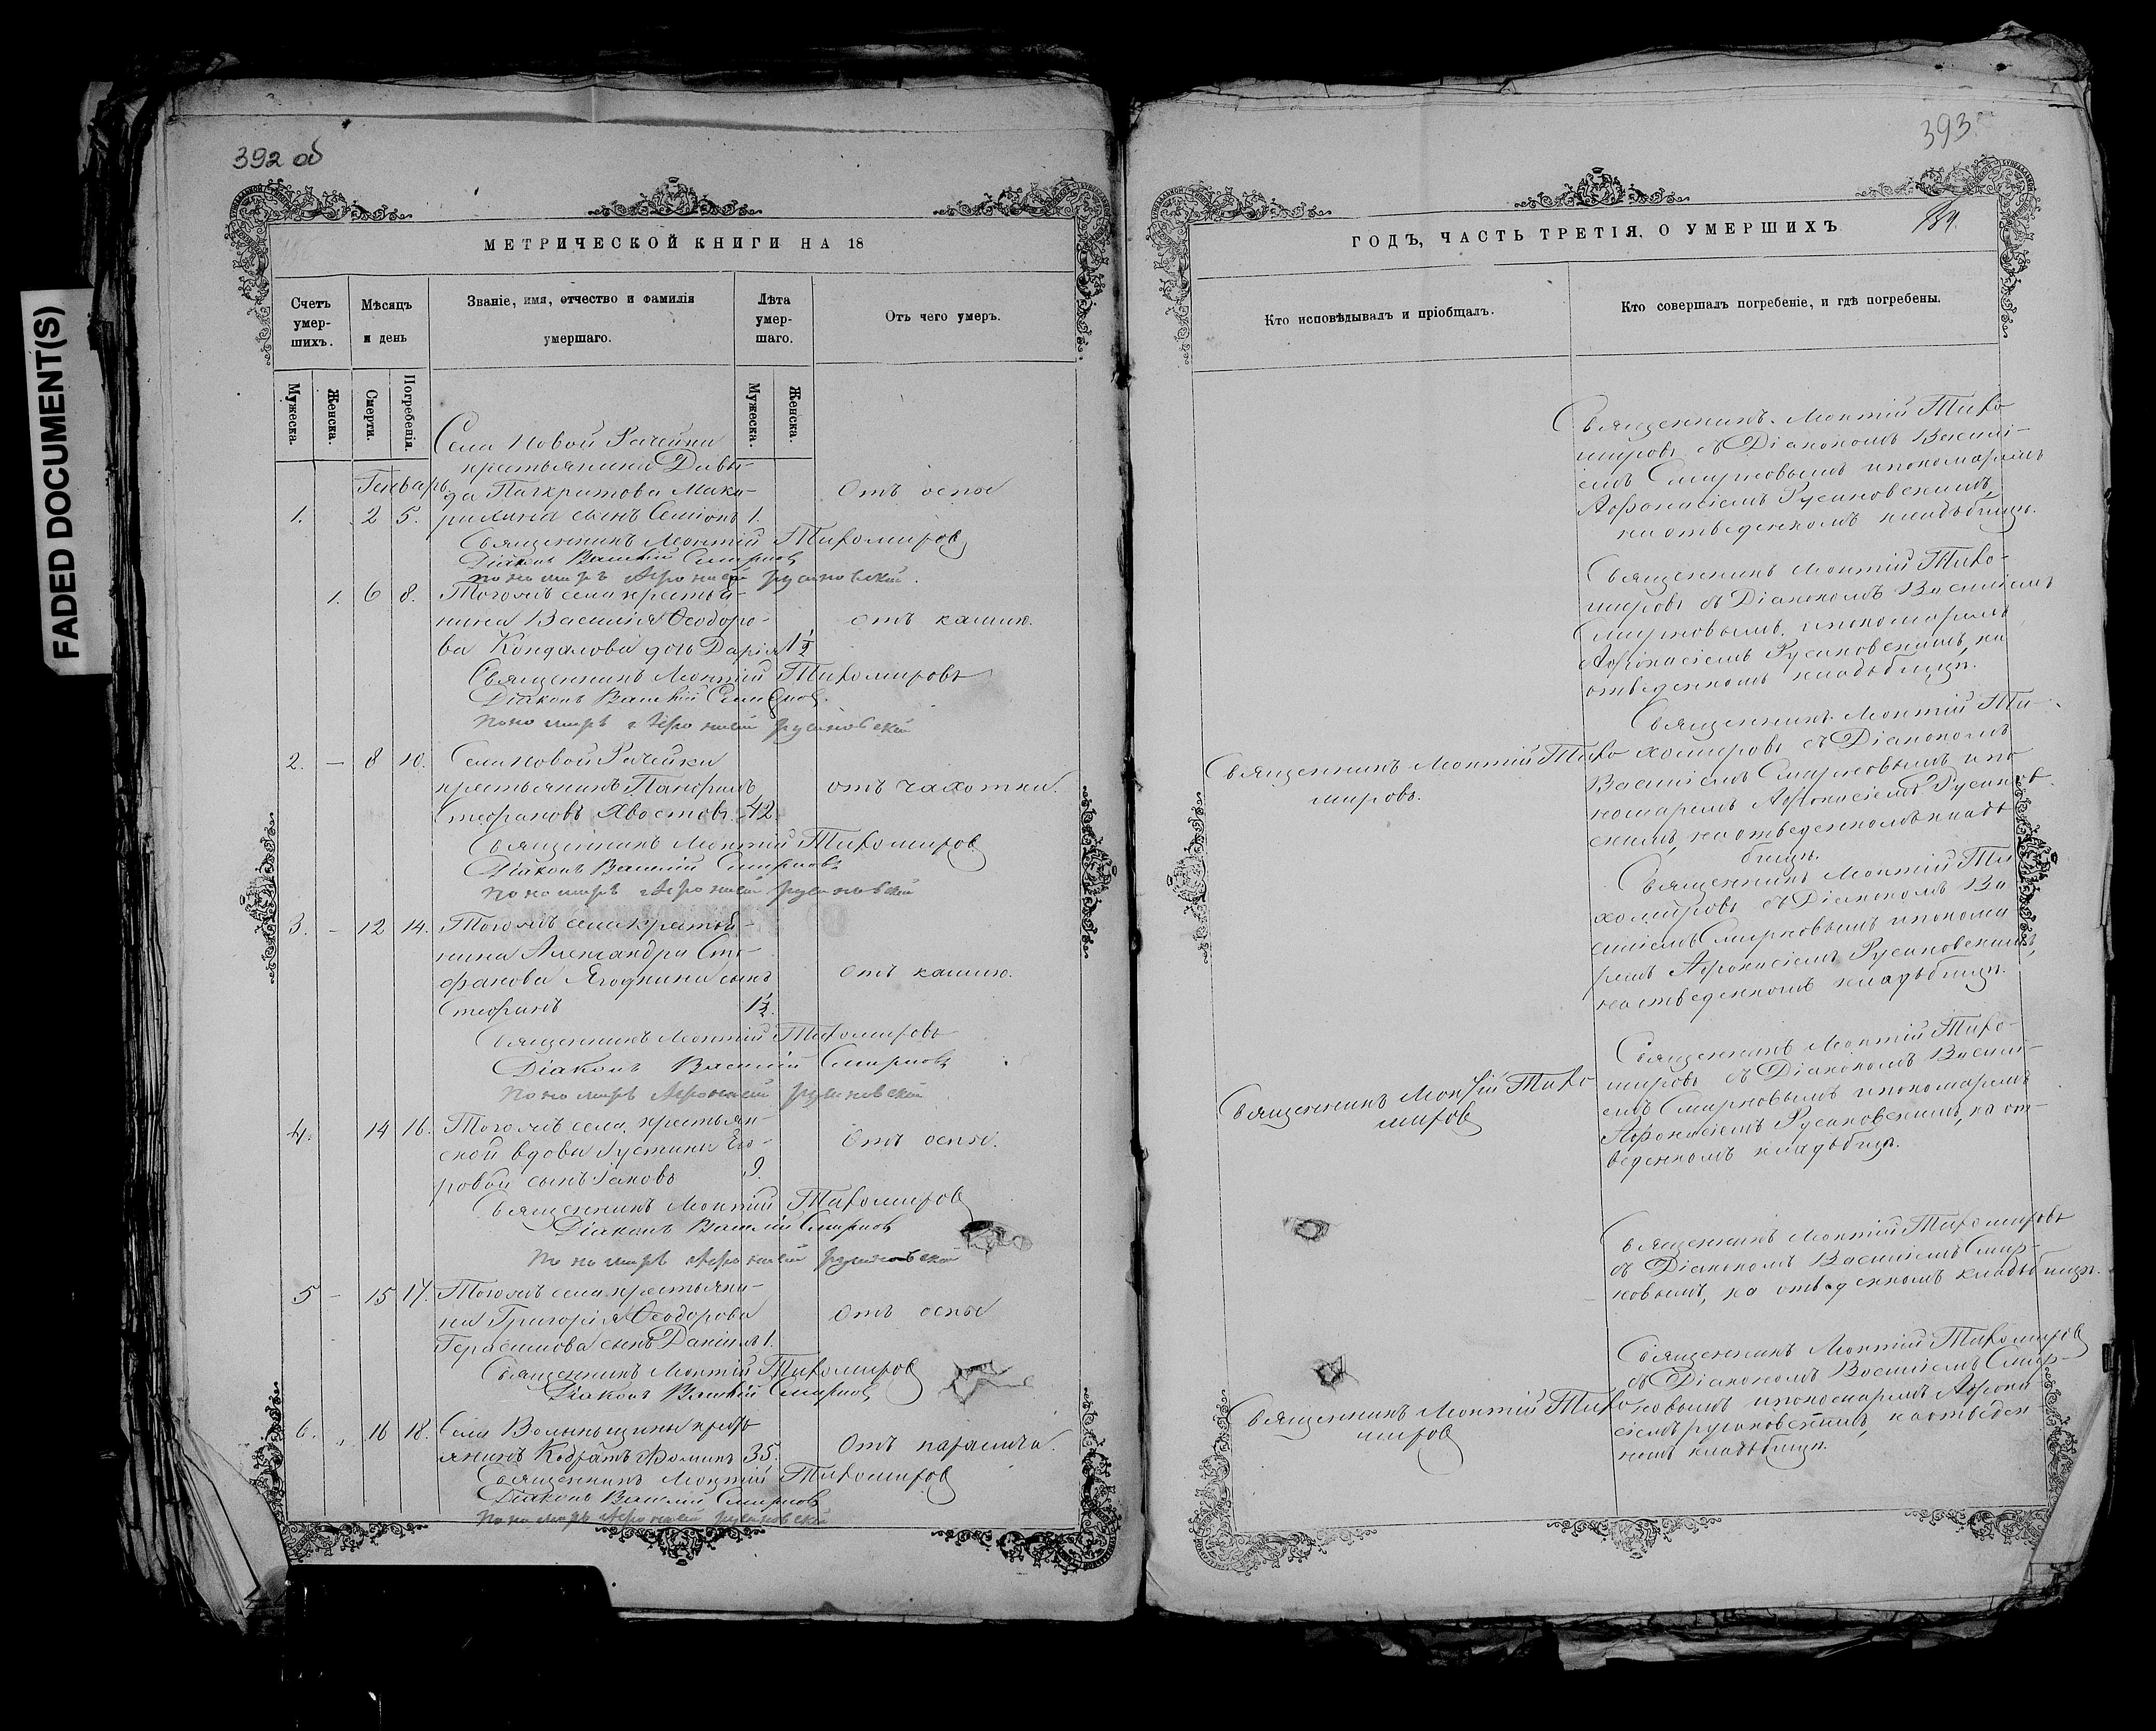 FADED DOCUMENT(S)
392 об
МЕТРИЧЕСКОЙ КНИГИ НА 18
Счетъ умер-шихъ.
Мѣсяцъ и день
Званіе, имя, отчество и фамилія умершаго.
Лѣта умер-шаго.
Отъ чего умеръ.
Мужеска.
Женска.
Смерти.
Погребенія.
Мужеска.
Женска.
Села Новой Рачейки
крестьянина Давы-
Генварь
да Панкратова Мака-
Отъ оспы
1. 2 5. сынъ Симеонъ 1.
Священникъ Монтій Тихомировъ
Діаконъ Василій Смирновъ
пономарь Афонасій Русановскій.
1. 6 8. Тогожъ села крестья-
нина Василія Ѳеодоро-
отъ кашлю.
ва дочь Дарія 1½
Священникъ Монтій Тихомировъ
Діаконъ Василій Смирновъ.
Пономарь Афонасій Русановскій
2. – 8 10. Села Новой Рачейки
крестьянинъ Панфилъ
отъ чахотки.
Стефановъ Хвостовъ. 42.
Священникъ Монтій Тихомировъ
Діаконъ Василій Смирновъ
Пономарь Афонасій Русановскій
3. – 12 14. Тогожъ села крестья-
нина Александра Сте-
фанова Ягодкина сынъ
Отъ кашлю.
Стефанъ 1½.
Священникъ Монтій Тихомировъ
Діаконъ Василій Смирновъ
Пономарь Афонасій Русановскій
4. 14 16. Тогожъ села крестьян-
ской вдовы Густины Его-
Отъ оспы.
ровой сынъ Іаковъ 9.
Священникъ Монтій Тихомировъ
Діаконъ Василій Смирновъ
Пономарь Афонасій Русановскій
5 – 15 17. Тогожъ села крестьяни-
на Григорія Ѳеодорова
Отъ оспы
Герасимова сынъ Даніилъ 1.
Священникъ Монтій Тихомировъ
Діаконъ Василій Смирновъ
6. „ 16 18. Села Волынщины крест
янинъ Кодратъ Фоминъ 35.
Отъ паралича.
Священникъ Монтій Тихомировъ
Діаконъ Василій Смирновъ
Пономарь Афонасій Русановскій
393
ГОДЪ, ЧАСТЬ ТРЕТІЯ, О УМЕРШИХЪ
Кто исповѣдывалъ и пріобщалъ.
Кто совершалъ погребеніе, и гдѣ погребены.
Священникъ Монтій Тихо
мировъ съ Діакономъ Васили-
емъ Смирновымъ и пономаремъ
Афонасіемъ Русановскимъ,
на отведенномъ кладбищѣ.
Священникъ Монтій Тихо-
мировъ съ Діакономъ Василіемъ
Смирновымъ и пономаремъ
Афонасіемъ Русановскимъ, на
отведенномъ кладбищѣ.
Священникъ Монтій Тихо
мировъ.
Священникъ Монтій Ти-
хомировъ съ Діакономъ
Василіемъ Смирновымъ и по
номаремъ Афонасіемъ Русанов-
скимъ, на отведенномъ кладъ
бищѣ.
Священникъ Монтій Ти
хомировъ съ Діакономъ Ва
силіемъ Смирновымъ и понома
ремъ Афонасіемъ Русановскимъ,
на отведенномъ кладъбищѣ.
Священникъ Монтій Тихо
мировъ
Священникъ Монтій Тихо-
мировъ съ Діакономъ Васили-
емъ Смирновымъ и пономаремъ
Афонасіемъ Русановскимъ, на от-
веденномъ кладъбищѣ.
Священникъ Монтій Тихомировъ
съ Діакономъ Василіемъ Смир-
новымъ, на отведенномъ кладъбищѣ.
Священникъ Монтій Тихо
мировъ
Священникъ Монтій Тихомировъ
съ Діакономъ Василіемъ Смир-
новымъ и пономаремъ Афона
сіемъ Русановскимъ, на отведен-
номъ кладъбищѣ.